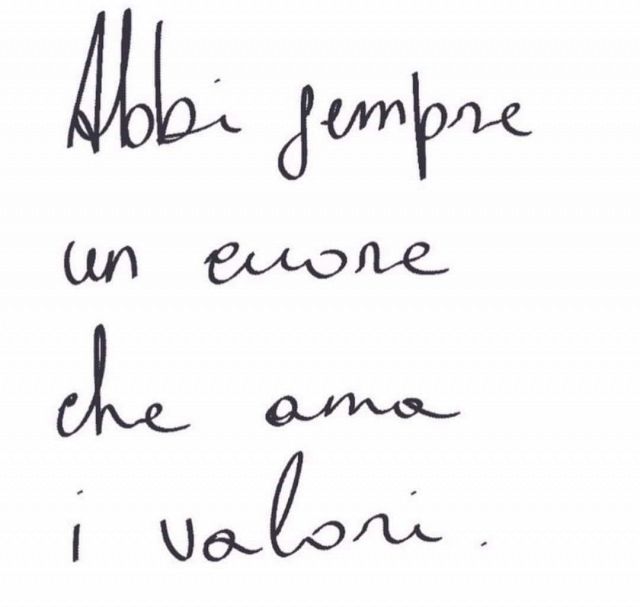 Abbi sempre
un cuore
che ama
i valori.